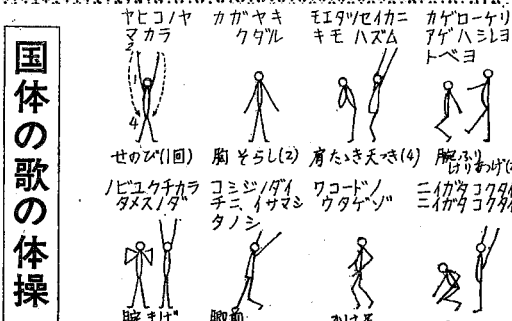 国体の歌の体操
ヤヒコノヤ
マカラ
カガヤキ
クダル
モエダツセイカニ
キモ ハズム
カゲローケリ
アゲハシレヨ
トベヨ
2
1
4
せのび(1回)
胸そらし(2)
肩たゝき天つき(4)
腕ふり
けりあげ
ノビユクチカラ
タメスノダ
コミジノダイ
チニ、イサマシ
タノシ
ワコードノ
ウタゲゾ
ニイガタコクタイ
ニイガタコクタイ
腕まげ
脚前
かけ足